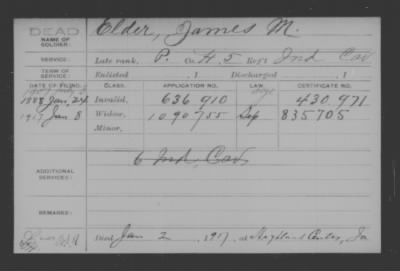 DEAD
NAME OF SOLDIER: Elder, James M.
SERVICE: Late rank, P. Co. H. 5 Reg't Ind Cav
TERM OF SERVICE: Enlisted , 1 Discharged , 1
DATE OF FILING. CLASS. APPLICATION NO. LAW. CERTIFICATE NO.
1888 Jan, 24 Invalid, 636 910 430 971
1917 Jan 8 Widow, 1090755 Sep 835705
Minor,
ADDITIONAL SERVICES: 6 Ind, Cav,
REMARKS:
Died Jan 2 , 1917, at Highland Center, Ia